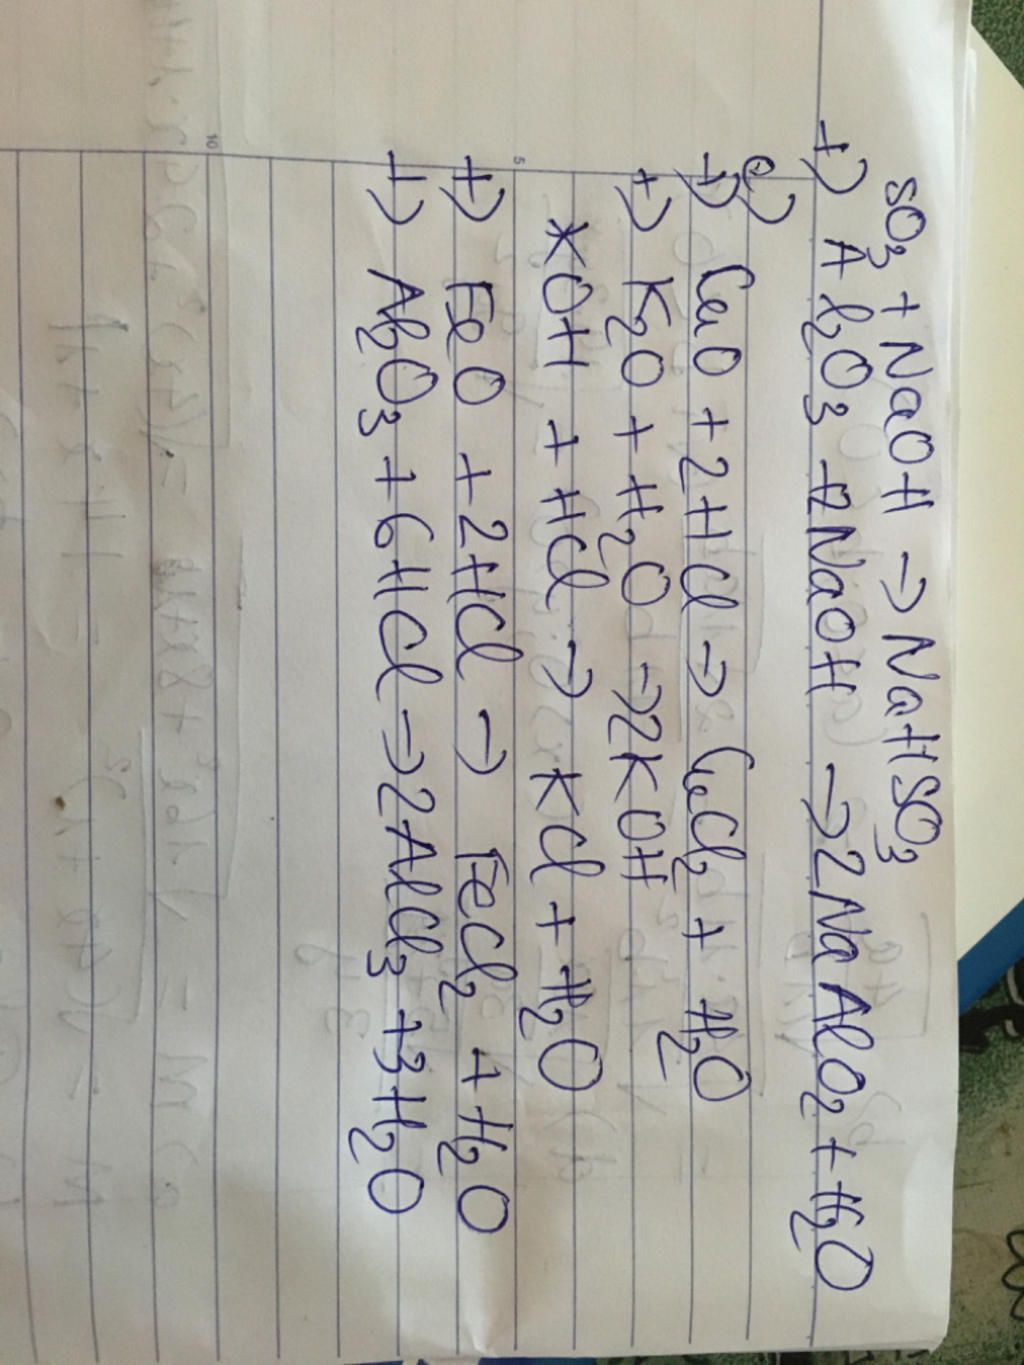 SO₃ + NaOH → NaHSO₃
+) Al₂O₃ + 2NaOH → 2NaAlO₂ + H₂O
e)
+) CaO + 2HCl → CaCl₂ + H₂O
+) K₂O + H₂O → 2KOH
KOH + HCl → KCl + H₂O
+) FeO + 2HCl → FeCl₂ + H₂O
+) Al₂O₃ + 6HCl → 2AlCl₃ + 3H₂O
5
10